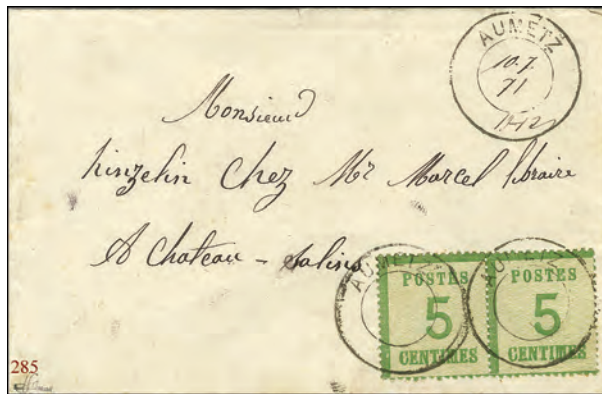 AUMETZ
10.7.
71
Monsieur
hinzelin Chez Mr Marcel libraire
A Chateau - Salins
AUMETZ AUMETZ
POSTES POSTES
5 5
CENTIMES CENTIMES
285